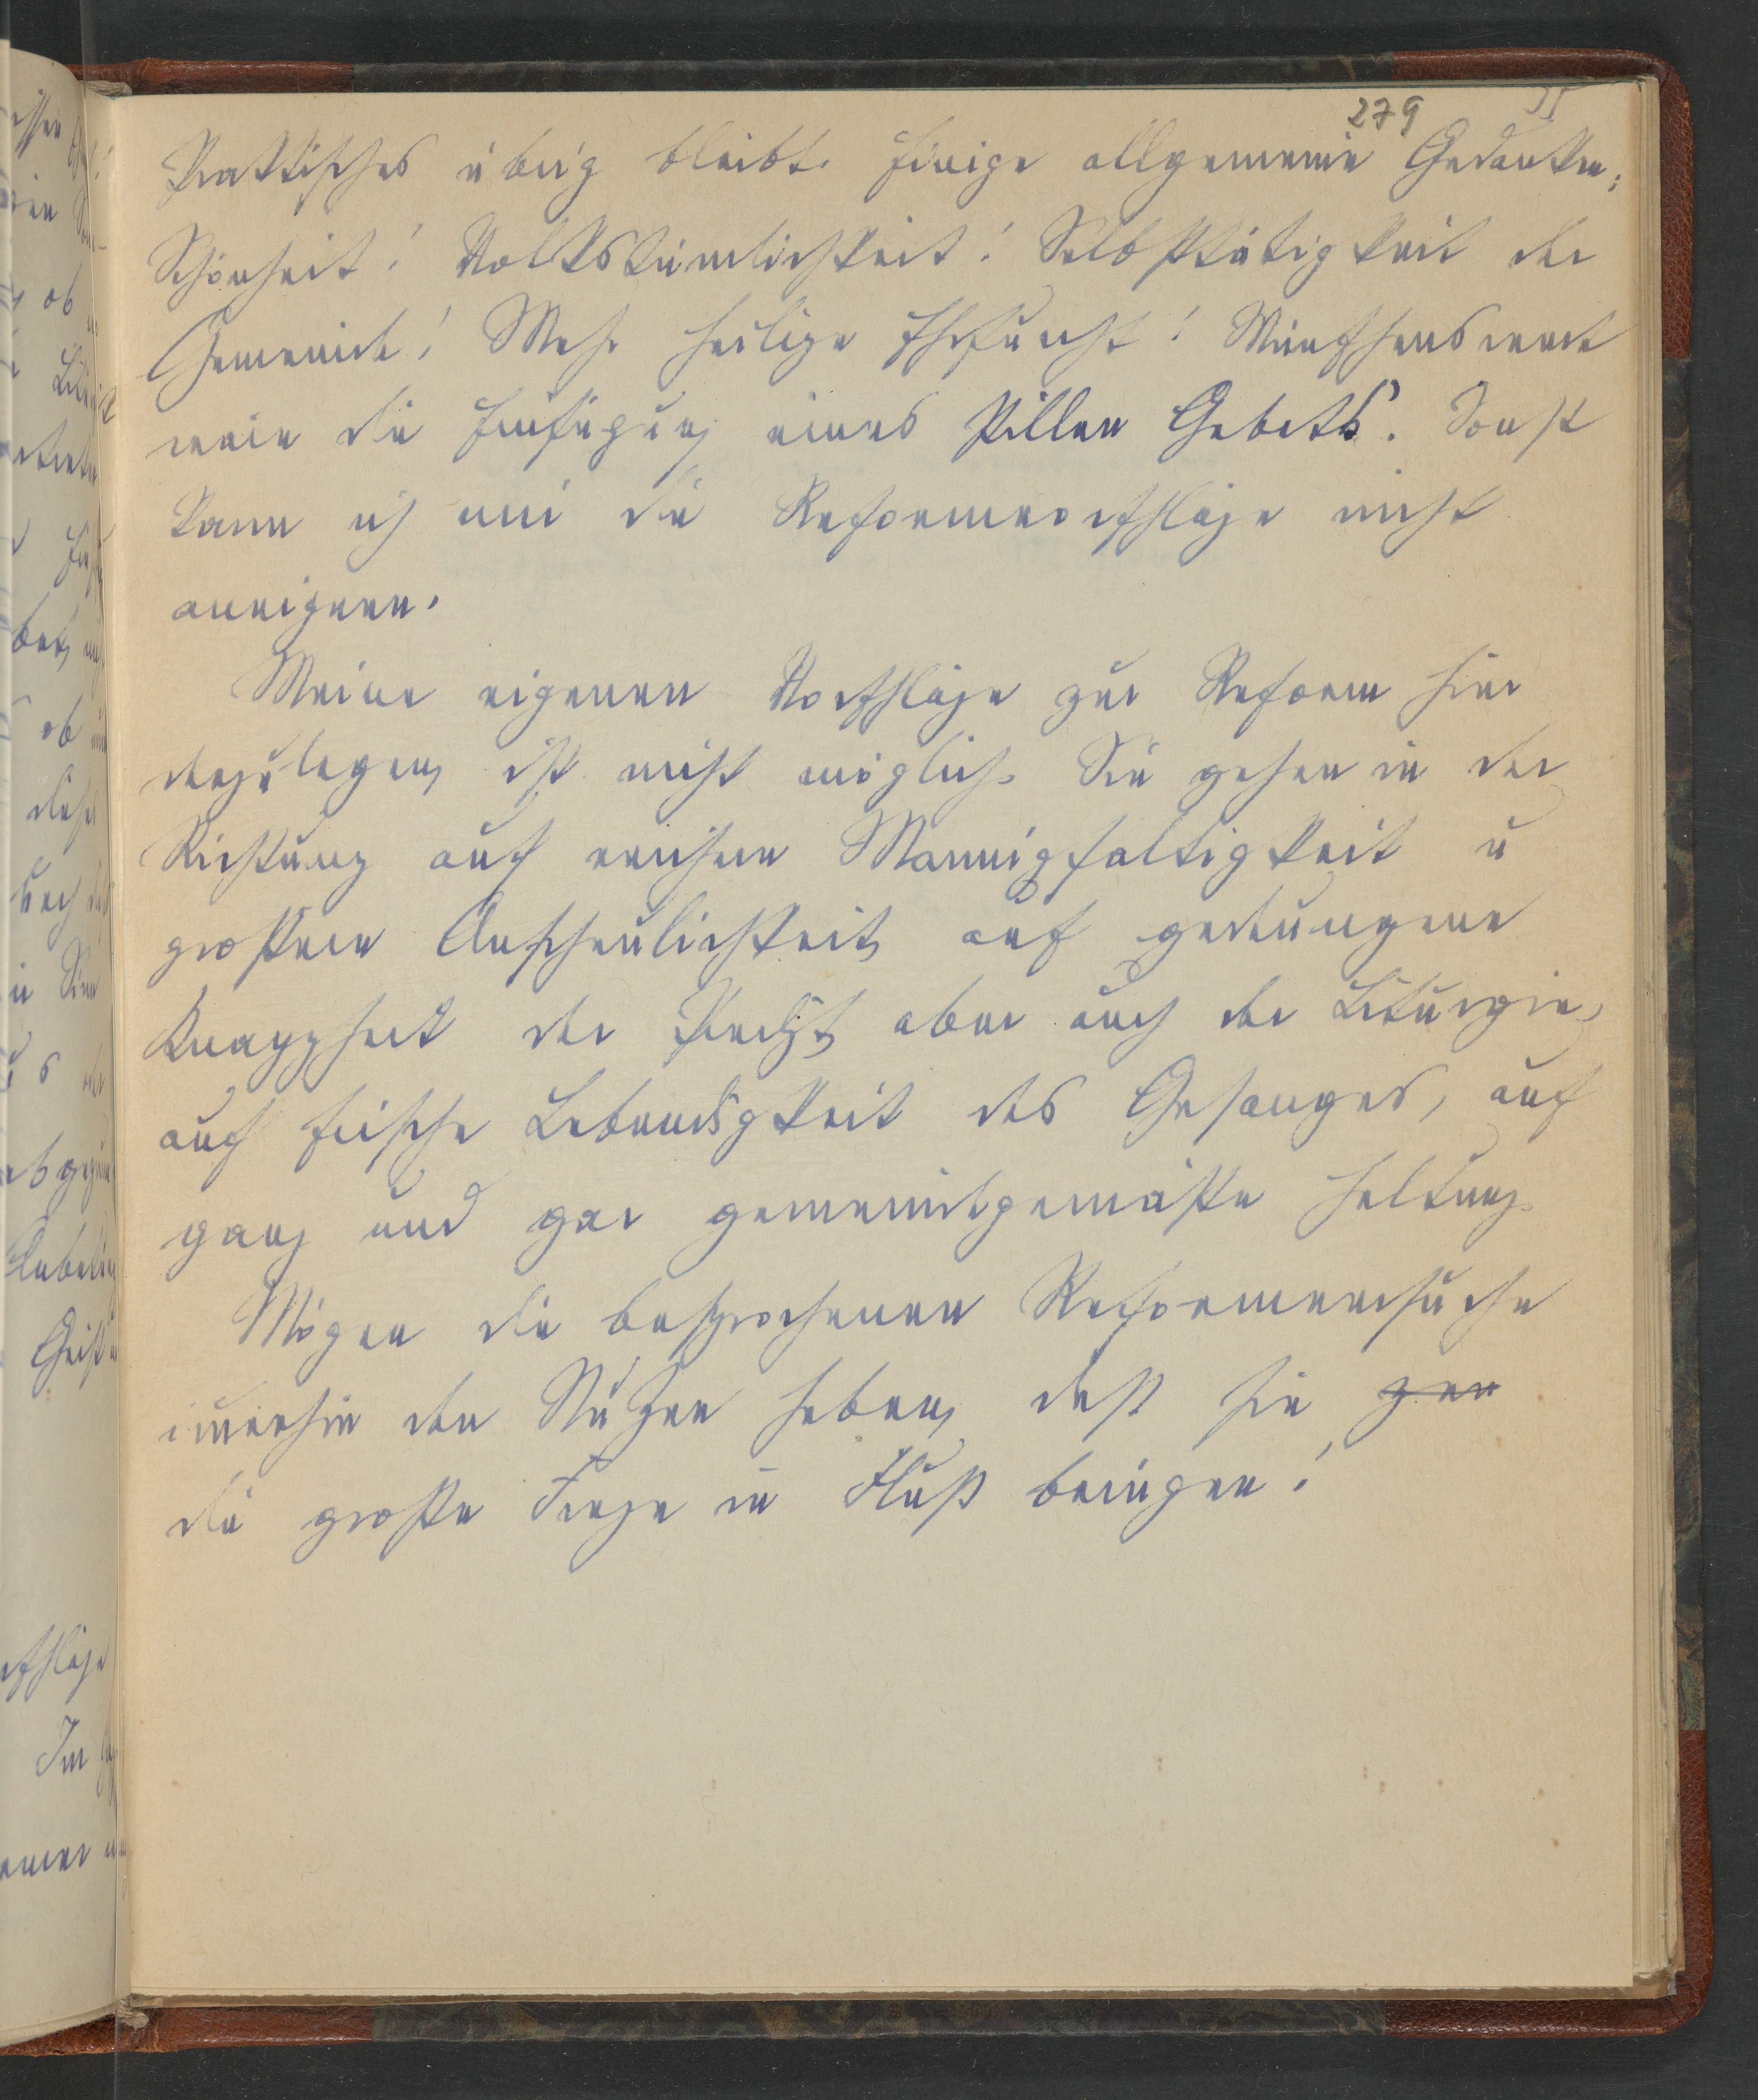 279
Praktisches übrig bleibt. Einige allgemeine Gedanken:
Schönheit! Volkstümlichkeit! Selbsttätigkeit der
Gemeinde! Mehr heilige Ehrfurcht! Wünschenswert
wäre die Einfügung eines stillen Gebets. Sonst
kann ich mir die Reformvorschläge nicht
aneignen.
Meine eigenen Vorschläge zur Reform hier
darzulegen, ist nicht möglich. Sie gehen in der
Richtung auf reichere Mannigfaltigkeit u
größere Anschaulichkeit, auf gedrungene
Knappheit der Predigt, aber auch der Liturgie,
auf frische Lebendigkeit des Gesanges, auf
ganz und gar gemeindegemäße Haltung.
Mögen die besprochenen Reformversuche
immerhin den Nutzen haben, daß sie
die große Frage in Fluß bringen!